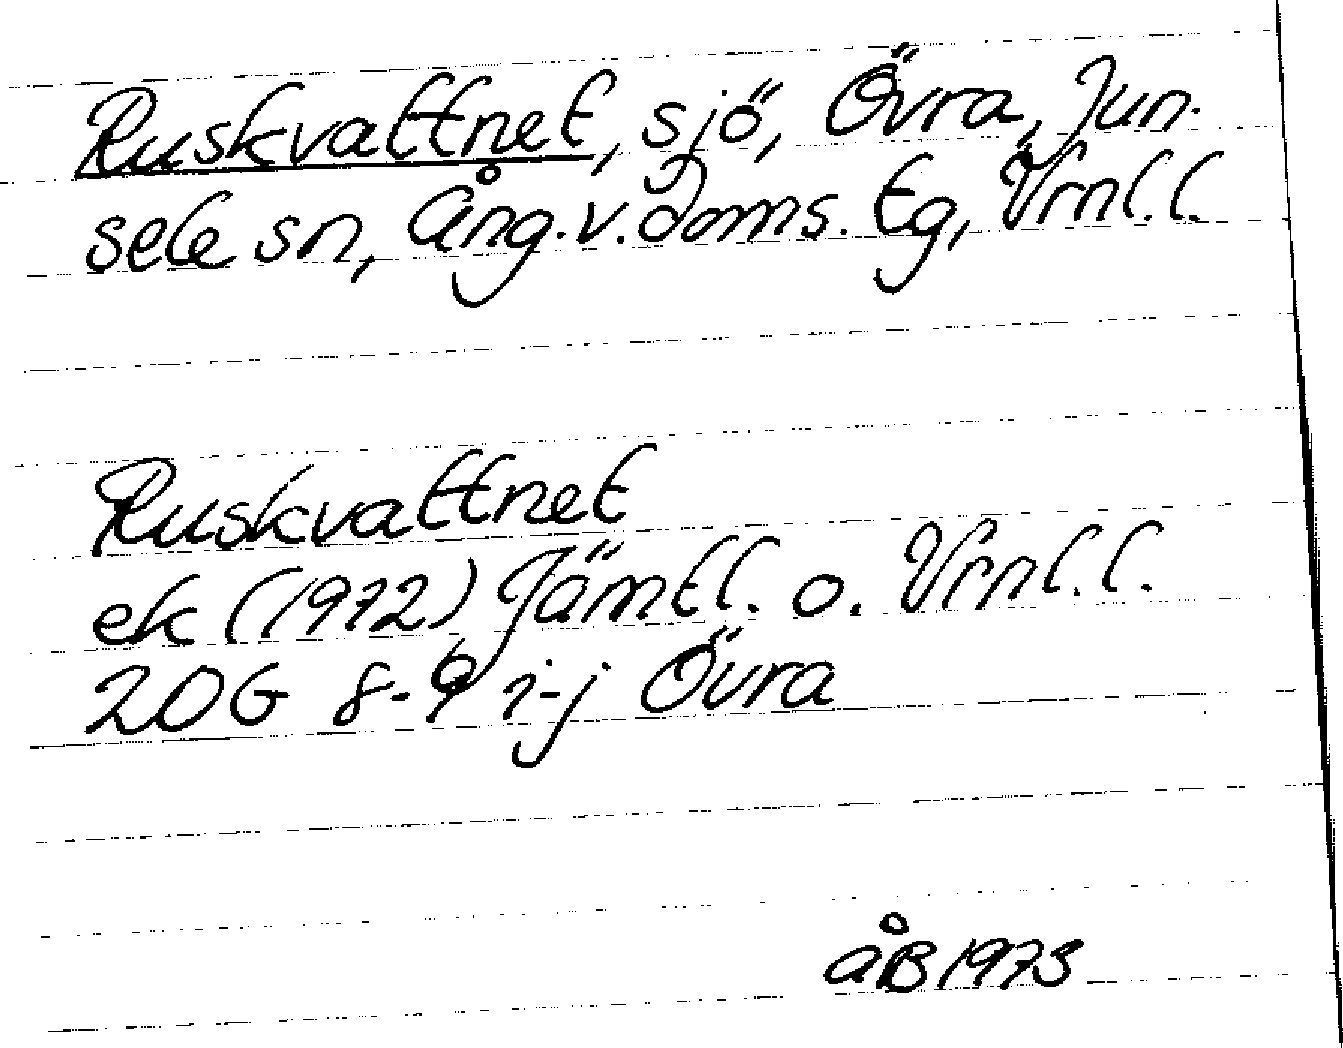 Ruskvattnet, sjö, Övra, Jun-
sele sn, Ång.v.doms. tg, Vrnl.l.
Ruskvattnet
ek (1972) Jämtl. o. Vrnl.l.
20G 8-9 i-j Övra
ÅB 1973